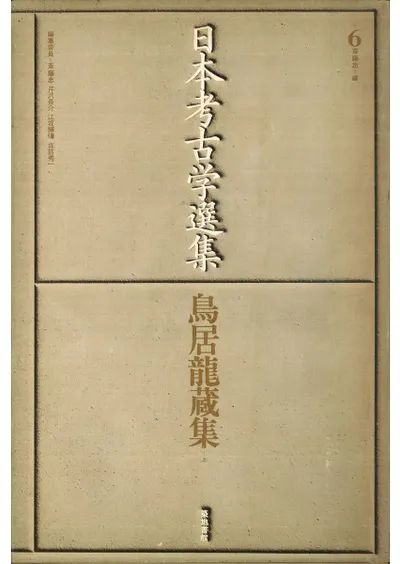 6
斎藤忠・編
日本考古学選集
編集委員・斎藤忠 芹沢長介 江坂輝彌 坂詰秀一
鳥居龍蔵集
上
築地書館